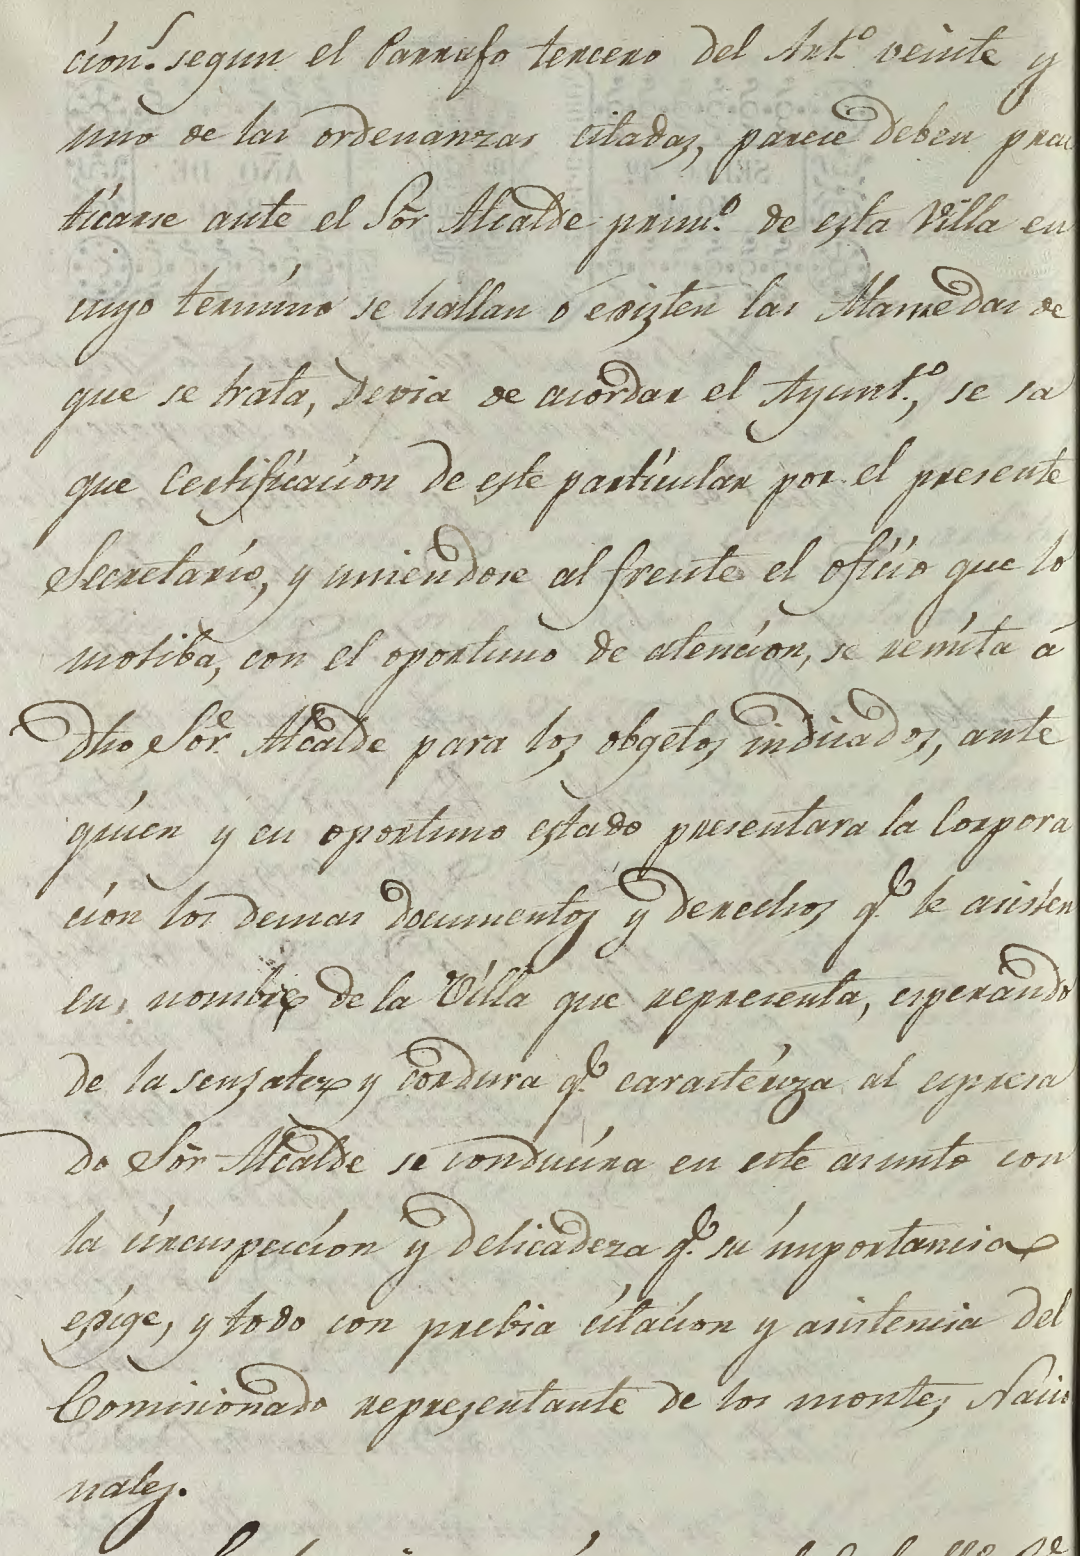 cion.ˢ segun el Parrafo tercero del Art.º veinte y
uno de las ordenanzas citadas, parece deben prac
ticarse ante el Sōr Alcalde prim.º de esta Villa en
cuyo termino se hallan ó existen las Alamedas de
que se trata, Devia de acordar el Ayunt.º, se sa
que Certificacion de este particular por el presente
Secretario, y uniendose al frente el oficio que lo
motiba, con el oportuno de atencion, se remita á
dho Sōr. Alcalde para los obgetos indicados, ante
quien y en oportuno estado presentara la Corpora
cion los demas documentos y derechos q.ᵉ le asisten
en nombre de la Villa que representa, esperando
de la sensatez y cordura q.ᵉ caracteriza al espresa
do Sōr Alcalde se conducira en este asunto con
la circuspeccion y delicadeza q.ᵉ su importancia
exige, y todo con prebia citacion y asistencia del
Comisionado representante de los montes Nacio
nales.